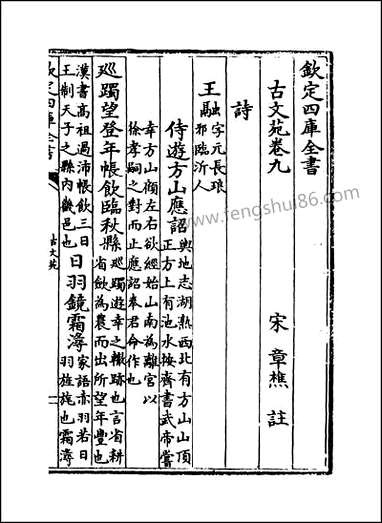 欽定四庫全書
古文苑卷九
宋 章樵 註
詩
王融字元長琅
邪臨沂人
侍遊方山應詔輿地志湖熟西北有方山山頂
正方上有池水按齊書武帝嘗
幸方山顧左右欲經始山南為離宮以
徐孝嗣之對而止應詔奉君命作也
廵躅望登年帳飲臨秋縣廵躅遊幸之轍跡也言省耕
省斂為農而出所望年豐也
漢書高祖過沛帳飲三日
王制天子之縣内畿邑也日羽鏡霜潯家語亦羽若日
羽旌旄也霜潯
欽定四庫全書
古文苑
一
www.fengshui86.com